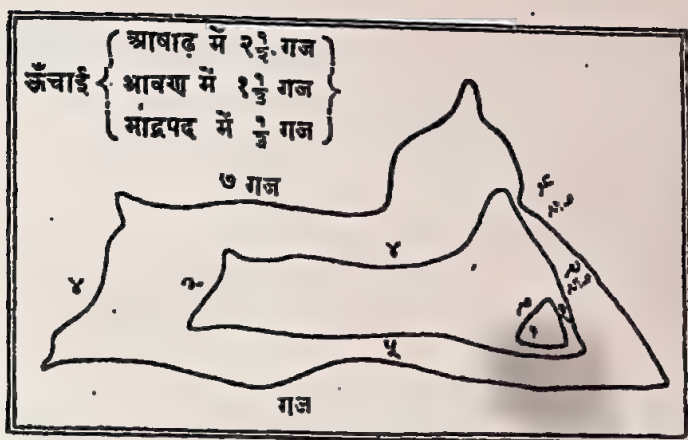 ऊँचाई
आषाढ़ में २१/२ गज
श्रावण में ११/३ गज
भाद्रपद में १/३ गज
७ गज
४
४
५
गज